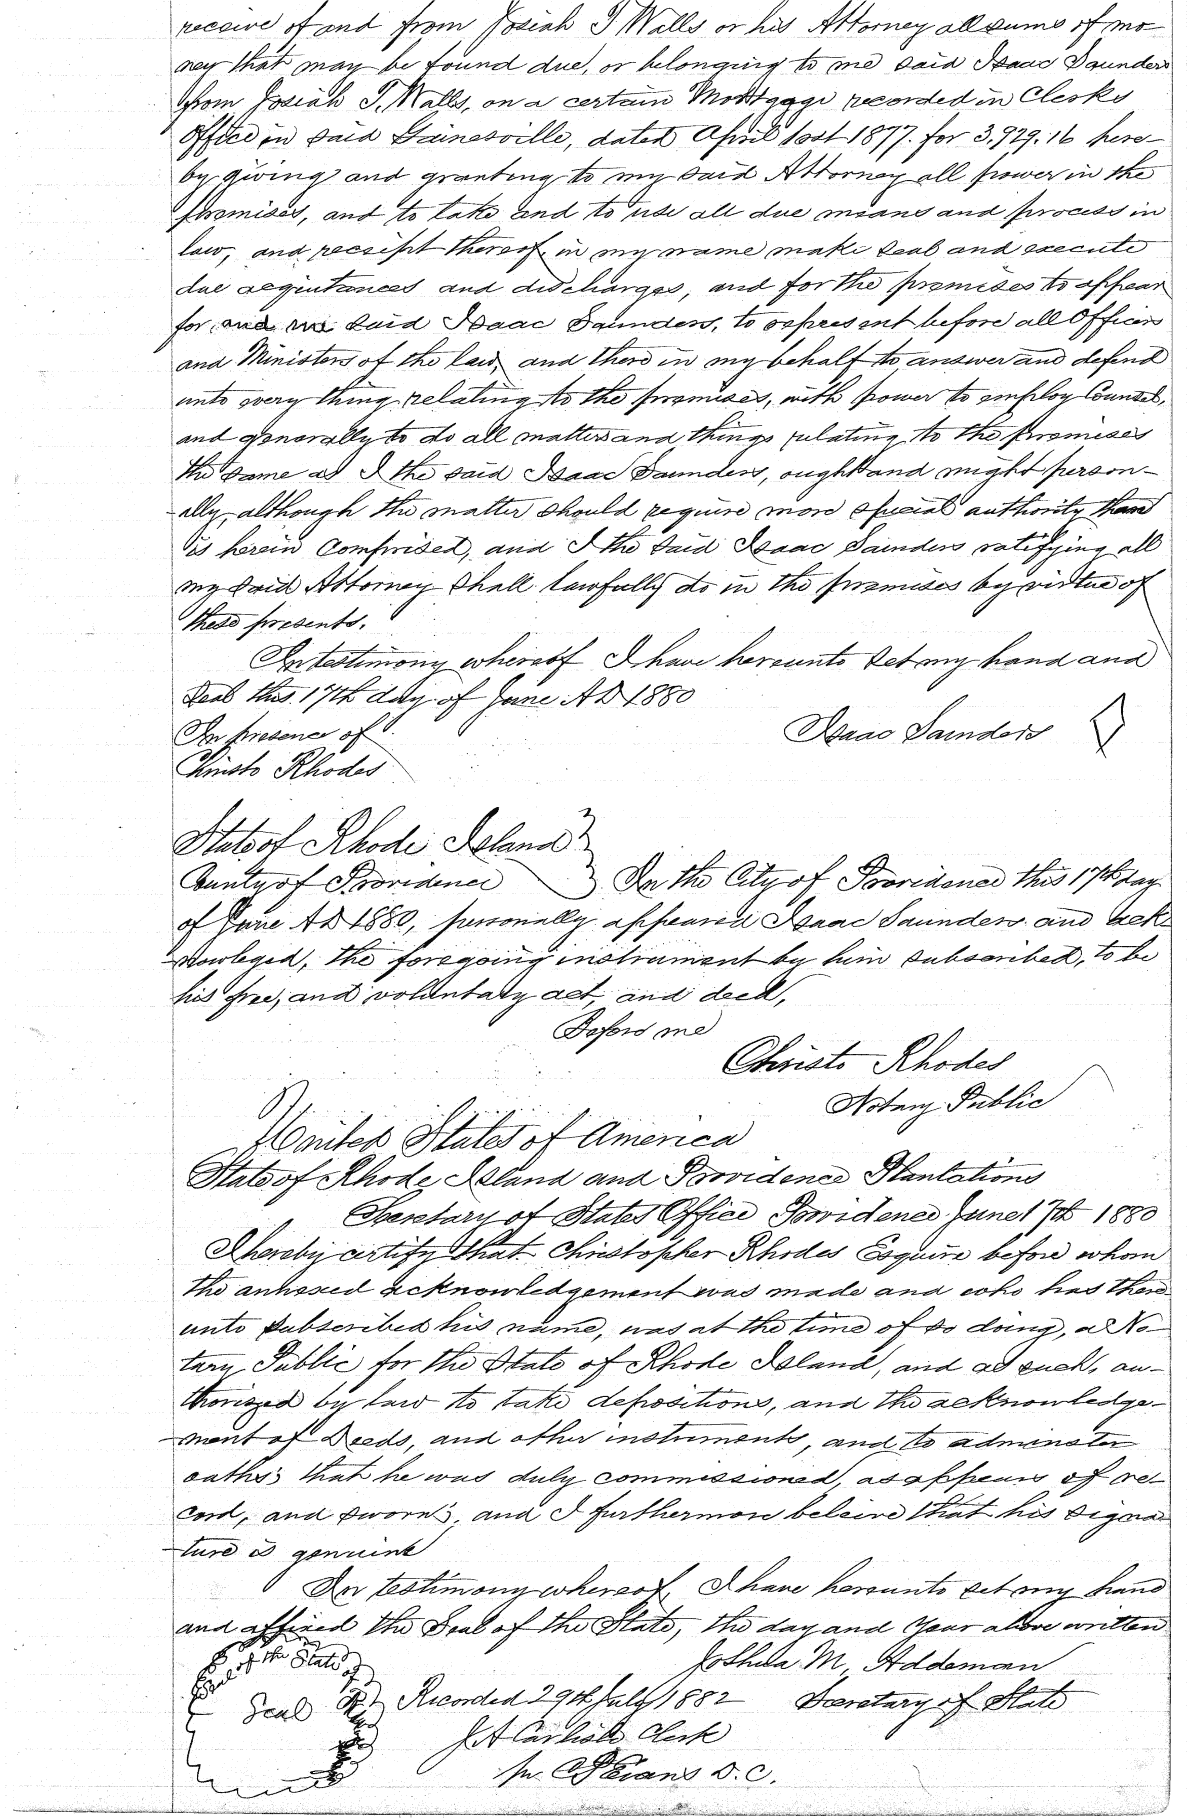 receive of and from Josiah T Walls or his Attorney all sums of mo
ney that may be found due, or belonging to me said Isaac Saunders
from Josiah T. Walls, on a certain Mortgage recorded in Clerks
Office in said Gainesville, dated April 1st 1877. for 3.929.16 here-
by giving and granting to my said Attorney all power in the
premises, and to take and to use all due means and process in
law, and receipt thereof in my name make seal and execute
due acquitances and discharges, and for the premises to appear
for and me said Isaac Saunders, to represent before all Officers
and Ministers of the law, and there in my behalf to answer and defend
unto every thing relating to the premises, with power to employ Counsel,
and generally to do all matters and things relating to the premises
the same as I the said Isaac Saunders, ought and might person-
ally, although the matter should require more special authority than
is herein Comprised, and I the said Isaac Saunders ratifying all
my said Attorney shall lawfully do in the premises by virtue of
these presents.
In testimony whereof I have hereunto set my hand and
Seal this 17th day of June AD 1880
In presence of
Isaac Saunders
Christo Rhodes
State of Rhode Island
County of Providence In the City of Providence this 17th day
of June AD 1880, personally appeared Isaac Saunders and ack
nowleged, the foregoing instrument by him subscribed, to be
his free, and voluntary act, and deed,
Before me
Christo Rhodes
Notary Public
United States of America
State of Rhode Island and Providence Plantations
Secretary of States Office Providence June 17th 1880
I hereby certify that Christopher Rhodes Esquire before whom
the annexed acknowledgement was made and who has there
unto subscribed his name, was at the time of so doing, a No-
tary Public for the State of Rhode Island, and as such, au-
thorized by law to take depositions, and the acknowledge-
ment of Deeds, and other instruments, and to adminster
oaths; that he was duly commissioned, as appears of re-
cord, and sworn; and I furthermore beleive that his signa
ture is genuine
In testimony whereof, I have hereunto set my hand
and affixed the Seal of the State, the day and Year above written
Seal of the State of
Joshua M, Addeman
Seal
Recorded 29th July 1882 Secretary of State
J A Carlisle Clerk
pr. Evans D. C.